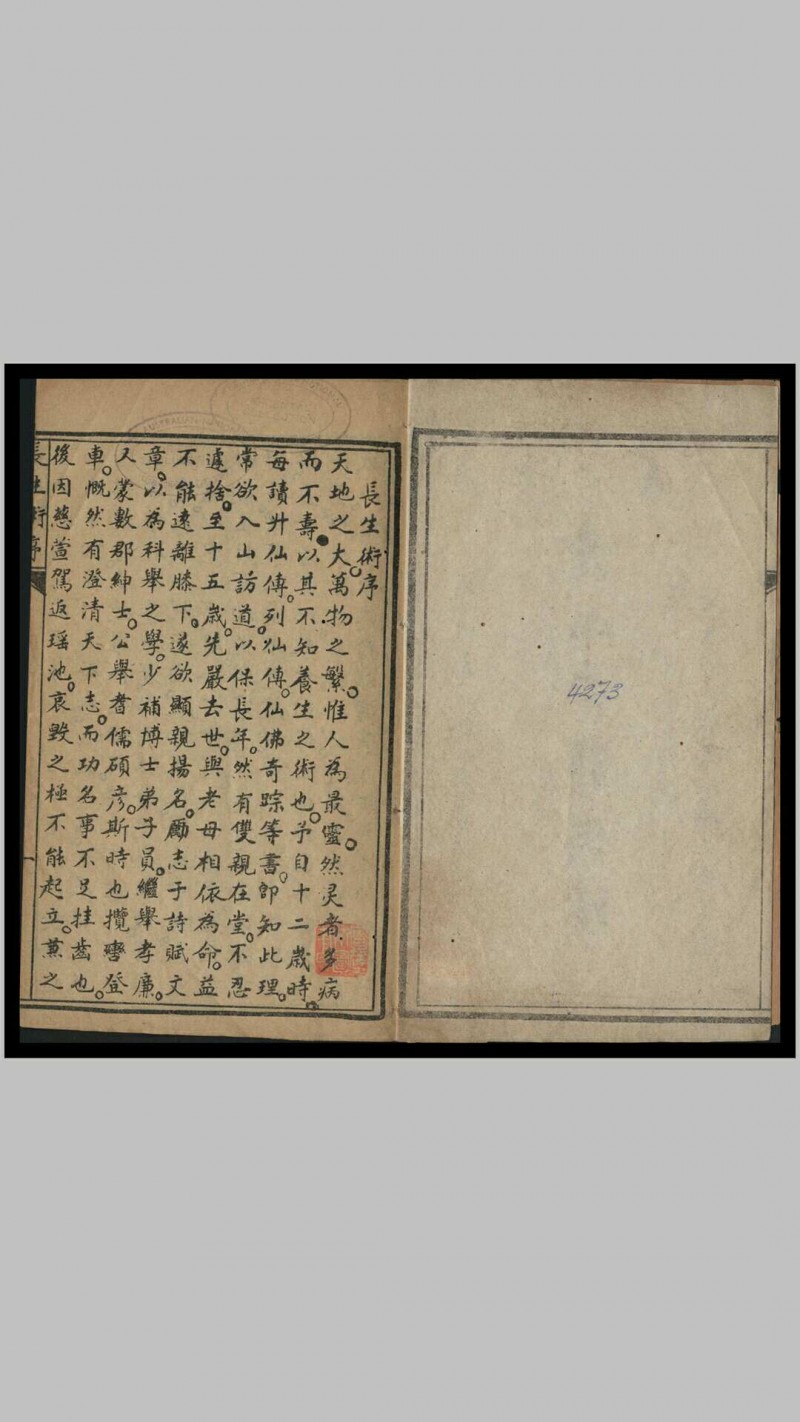 4273
長生術序
天地之大。萬物之繁。惟人為最靈。然灵者多病
而不壽。以其不知養生之術也。予自十二歲時。
每讀升仙傳。列仙傳。仙佛奇踪等書。即知此理。
常欲入山訪道。以保長年。然有雙親在堂。不忍
遽捨。至十五歲。先嚴去世。與老母相依為命。益
不能遠離膝下。遂欲顯親揚名。勵志于詩賦文
章。以為科舉之學。少補博士弟子員。繼舉孝廉。
又蒙數郡紳士。公舉耆儒碩彥。斯時也攬轡登
車。慨然有澄清天下志。而功名事不足挂齒也。
後因慈萱駕返瑶池。哀毀之極不能起立。兼之
長生術序
一